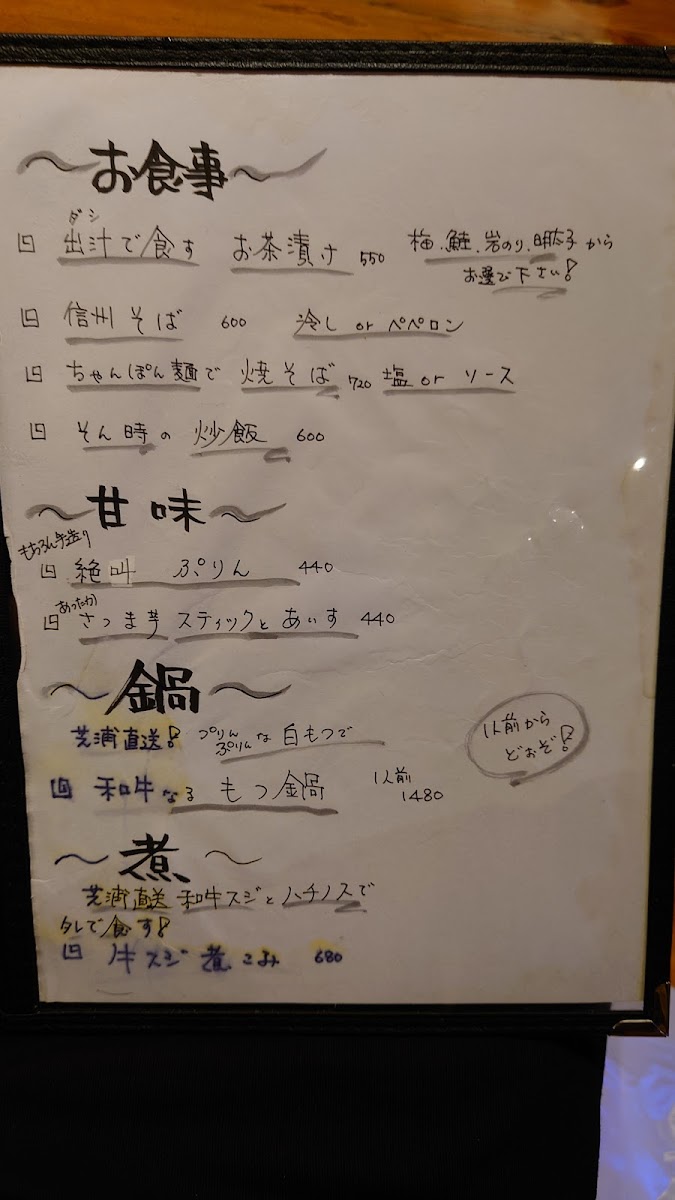 〜お食事〜
出汁で食す お茶漬け 550 梅、鮭、岩のり、明太子から
ダシ
お選び下さい!
信州そば 600 冷し or ペペロン
ちゃんぽん麺で 焼そば 720 塩 or ソース
そん時の 炒飯 600
〜甘味〜
もちろん手造り
絶叫 ぷりん 440
あったか
さつま芋スティックとあいす 440
〜鍋〜
芝浦直送! ぷりんぷりんな白もつで
和牛なる もつ鍋 1人前 1480
1人前から
どおぞ!
〜煮〜
芝浦直送 和牛スジとハチノスで
タレで食す!
牛スジ煮こみ 680